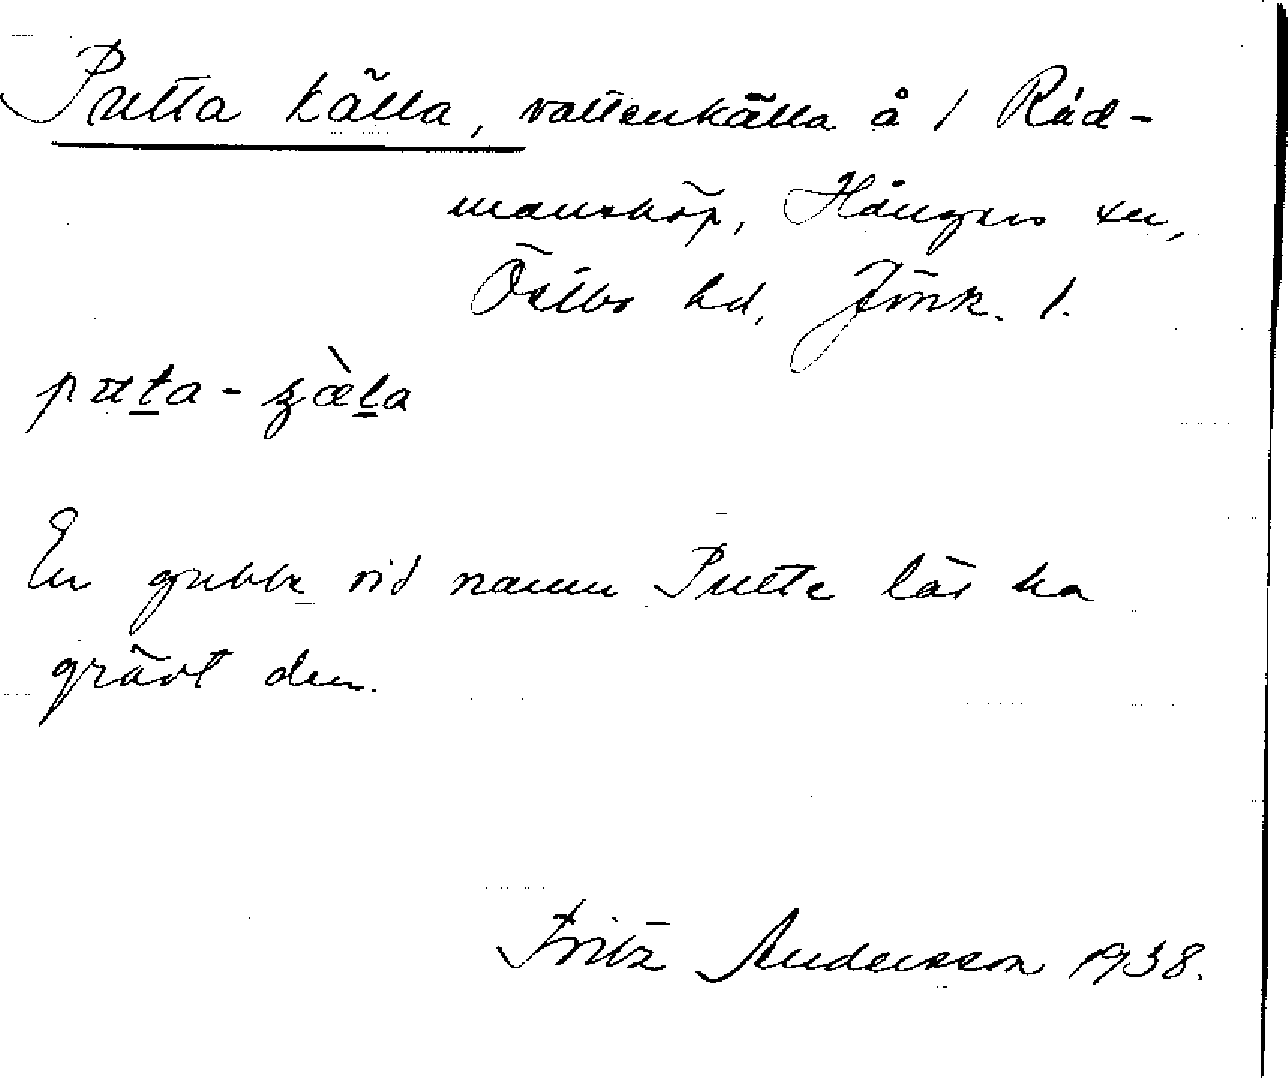 Putta källa, vattenkälla å 1 Råd-
manshöp, Hånger sn,
Östbo hd, Jönk. l.
puta - kæ̀la
En gubbe vid namn Putte lär ha
grävt den.
Fritz Andersson 1938.